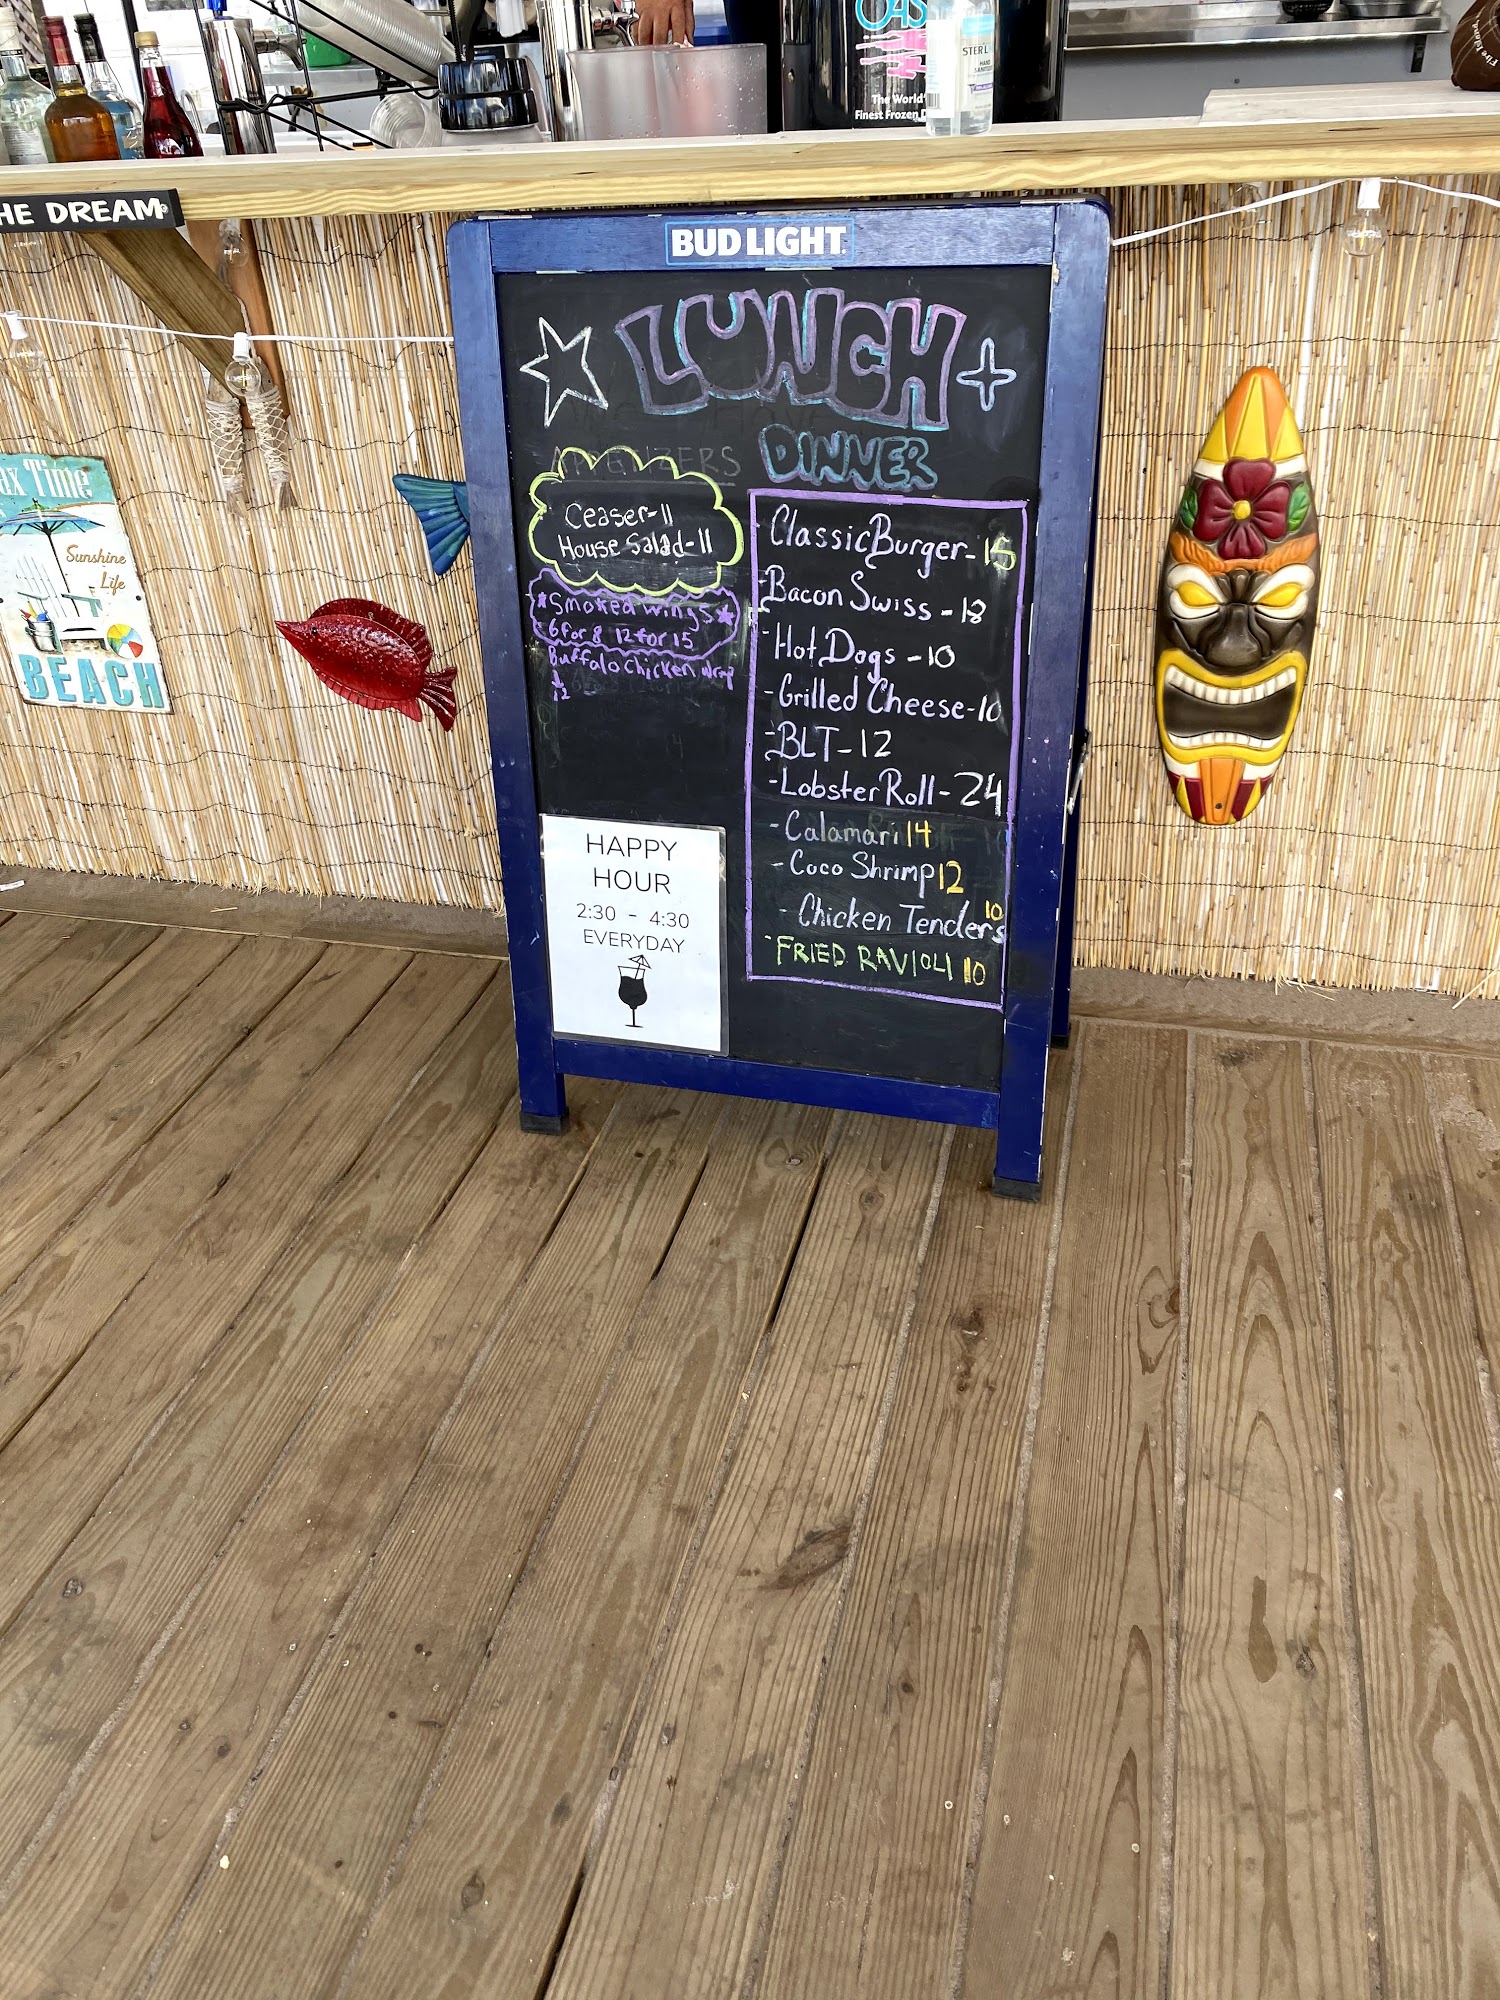 OAS
STERL
HAND
The World'
Finest Frozen D
Fire Island
HE DREAM
BUD LIGHT
LUNCH +
DINNER
APPETIZERS
Ceaser-11
House Salad-11
*Smoked Wings*
6 for 8 12 for 15
Buffalo Chicken Wrap
12
Classic Burger-15
-Bacon Swiss-18
-Hot Dogs-10
-Grilled Cheese-10
-BLT-12
-Lobster Roll-24
-Calamari 14
-Coco Shrimp 12
-Chicken Tenders 10
-FRIED RAVIOLI 10
HAPPY
HOUR
2:30 - 4:30
EVERYDAY
ax Time
Sunshine
Life
BEACH